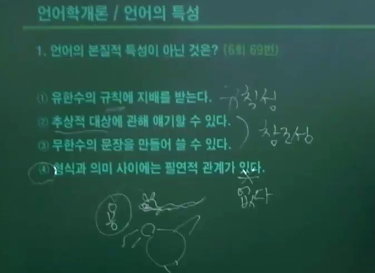 언어학개론 / 언어의 특성
1. 언어의 본질적 특성이 아닌 것은? (6회 69번)
① 유한수의 규칙에 지배를 받는다. 규칙성
② 추상적 대상에 관해 얘기할 수 있다.
창조성
③ 무한수의 문장을 만들어 쓸 수 있다.
④ 형식과 의미 사이에는 필연적 관계가 있다.
없다